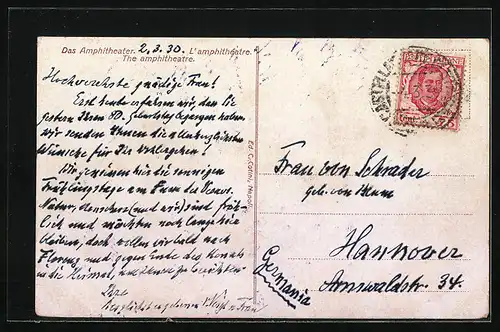 Das Amphitheater. 2.3.30. L'amphithéatre.
The amphitheatre.
Hochverehrte gnädige Frau!
Erst heute erfahren wir, daß Sie
gestern Ihren 80. Geburtstag begangen haben,
wir senden Ihnen die allerherzlichsten
Wünsche für Ihr Wohlergehen!
Wir genießen hier die sonnigen
Frühlingstage am
Natur, Menschen (und wir) sind fröh-
lich und möchten noch lange hier
bleiben, doch wollen wir bald nach
Florenz und gegen Ende des Monats
in die Heimat,
Ihre
Ed. C. Cotini, Napoli
Frau von Schrader
geb. von
Hannover
Arnswaldtstr. 34.
Germania